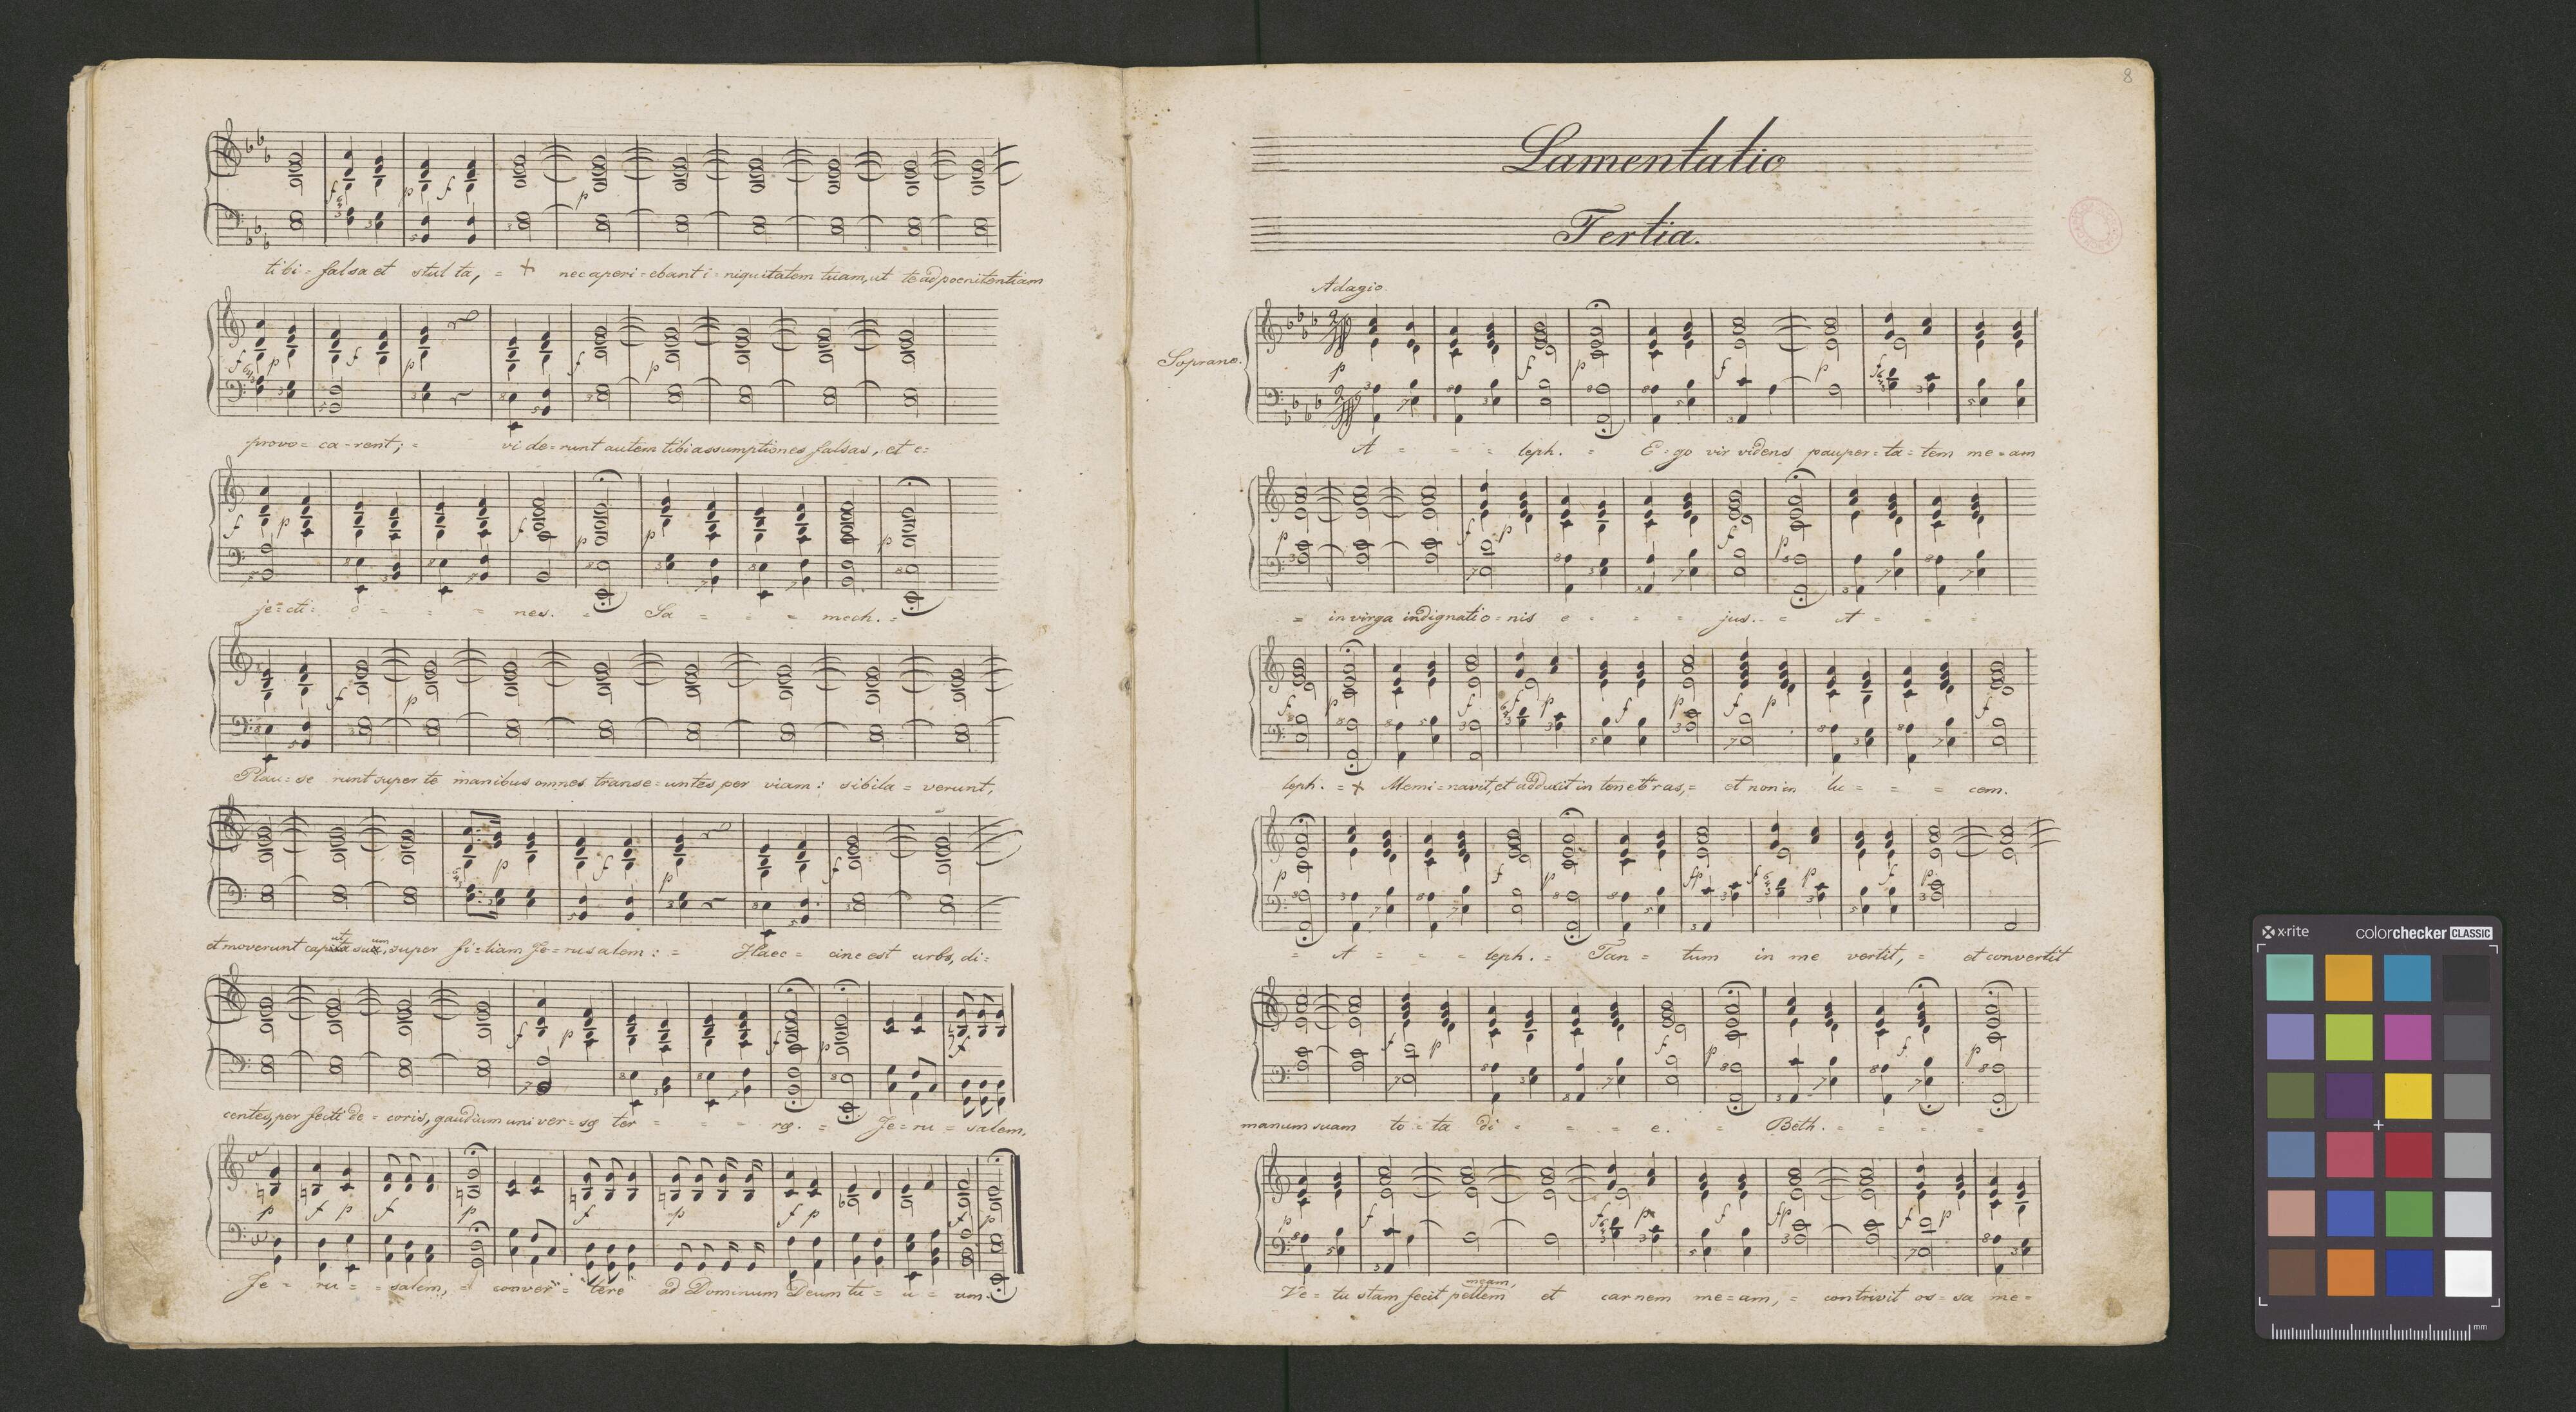 tibi = falsa et stul ta, = + nec aperi = ebant i = niquitatem tuam, ut te ad poenitentiam
provo = ca - rent; = vi de = runt autem tibi assumptiones falsas, et e =
je = cti = o = = = nes. = Sa = = = mech. =
Plau = se runt super te manibus omnes transe = untes per viam : sibila = verunt,
et moverunt caput suum, super fi = liam Je = rusalem : = Haec = cine est urbs, di =
centes, per fecti de = coris, gaudium uni ver = sæ ter = = = ræ. = Je = ru = salem,
Je = ru = = salem, = conver = tere ad Dominum Deum tu = u = um.
8
Lamentatio
Tertia.
Adagio.
Soprano.
A = = = leph. = E = go vir videns pauper = ta = tem me = am
= in virga indignatio = nis e = = = jus. = A = = =
leph. = + Memi = navit, et adduxit in teneb ras, = et non in lu = = = cem.
= A = = = leph. = Tan = tum in me vertit, = et convertit
manum suam to = ta di = = = e. = Beth. = = = =
meam,
Ve = tu stam fecit pellem et carnem me = am, = contrivit os = sa me =
x-rite colorchecker CLASSIC
mm